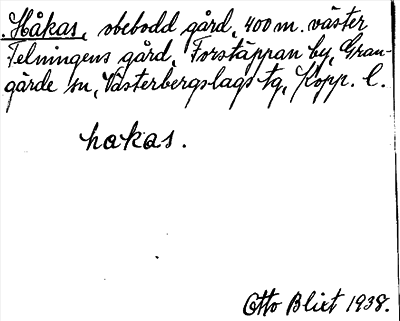 Håkas, obebodd gård, 400 m. väster
Telningens gård, Forstäppan by, Gran-
gärde sn, Västerbergslags tg, Kopp. l.
hakas.
Otto Blixt 1938.